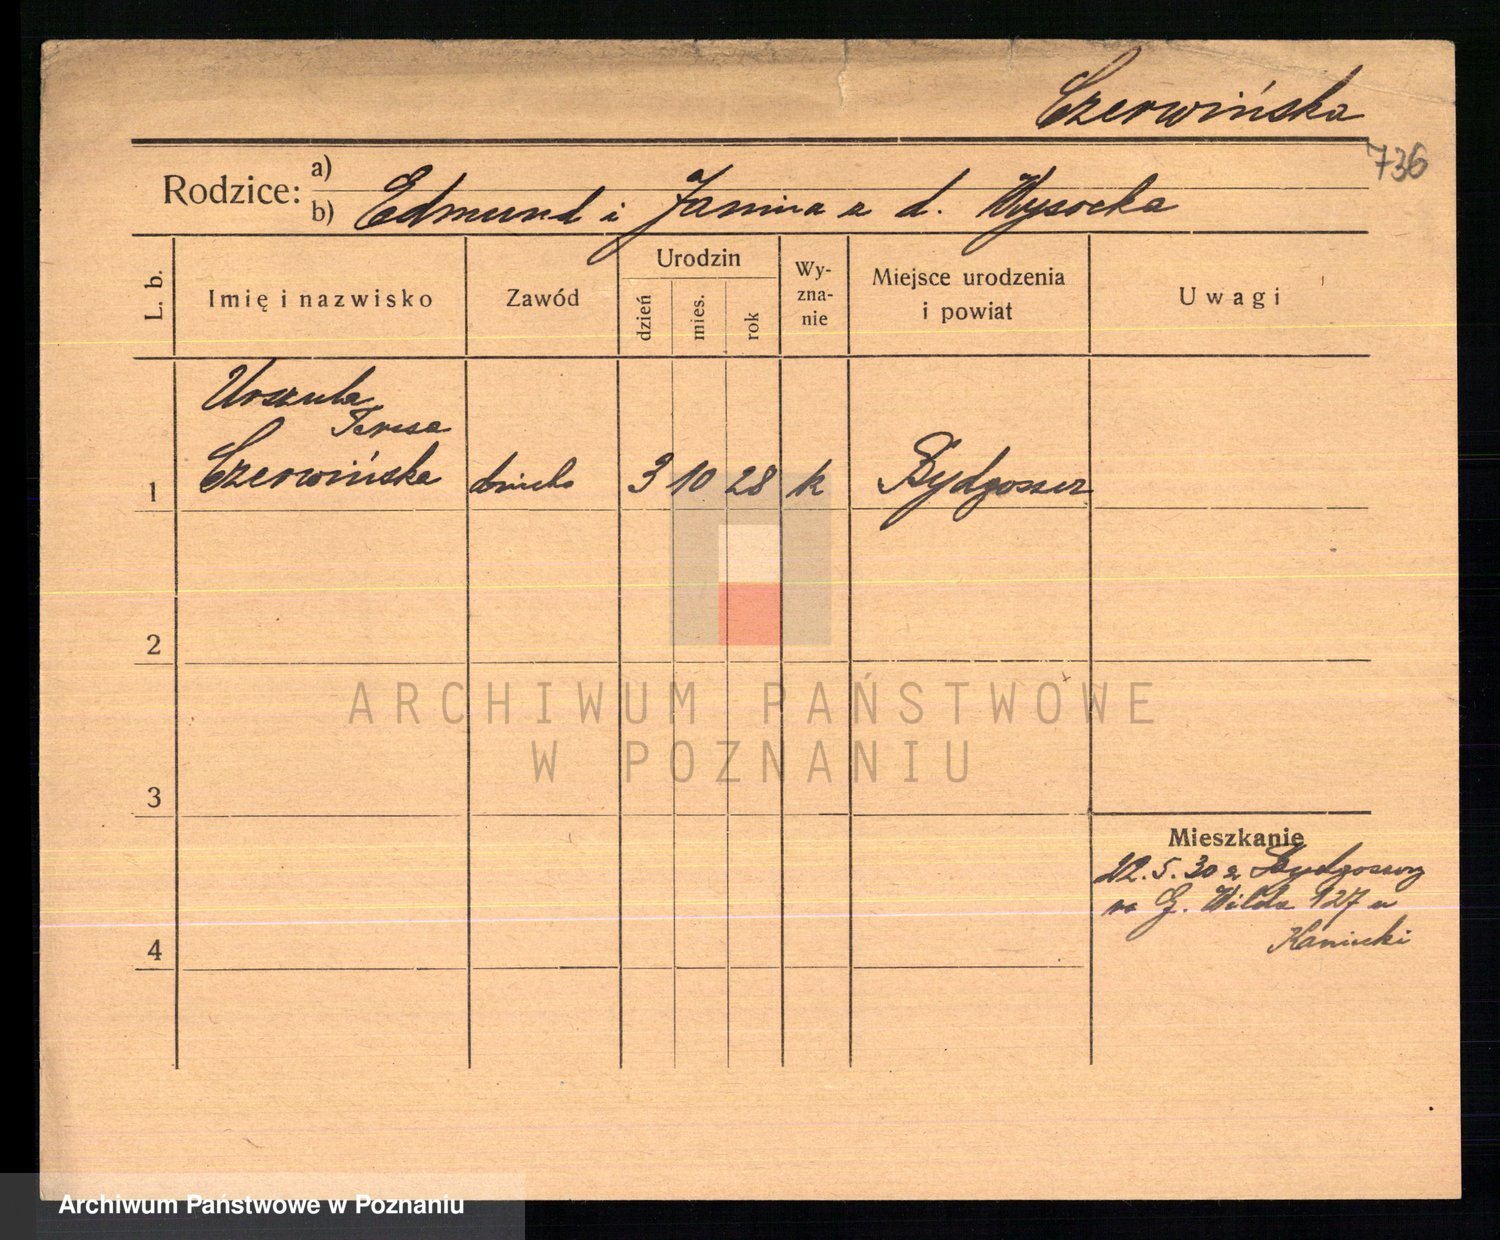 Czerwińska
736
Rodzice: a)
b) Edmund i Janina z d. Wysocka
L. b. Imię i nazwisko Zawód Urodzin dzień mies. rok Wyzna-nie Miejsce urodzenia i powiat Uwagi
Urszula
Teresa
1 Czerwińska 3 10 28 k Bydgoszcz
2
ARCHIWUM PAŃSTWOWE
W POZNANIU
3
Mieszkanie
22.5.30 z Bydgoszczy
na G. Wilda 127 u
4
Archiwum Państwowe w Poznaniu